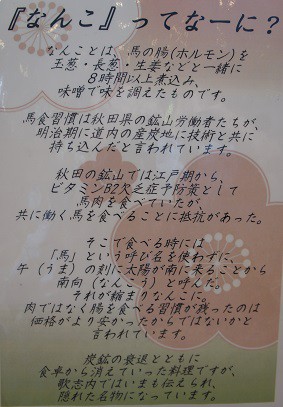 『なんこ』ってなーに？
なんことは、馬の腸(ホルモン)を
玉葱・長葱・生姜などと一緒に
8時間以上煮込み、
味噌で味を調えたものです。
馬食習慣は秋田県の鉱山労働者たちが、
明治期に道内の産炭地に技術と共に
持ち込んだと言われています。
秋田の鉱山では江戸期から、
ビタミンB2欠乏症予防策として
馬肉を食べていたが、
共に働く馬を食べることに抵抗があった。
そこで食べる時には
「馬」という呼び名を使わずに、
午（うま）の刻に太陽が南に来ることから
南向（なんこう）と呼んだ。
それが縮まりなんこに。
肉ではなく腸を食べる習慣が残ったのは
価格がより安かったからではないかと
言われています。
炭鉱の衰退とともに
食卓から消えていった料理ですが、
歌志内ではいまも伝えられ、
隠れた名物になっています。